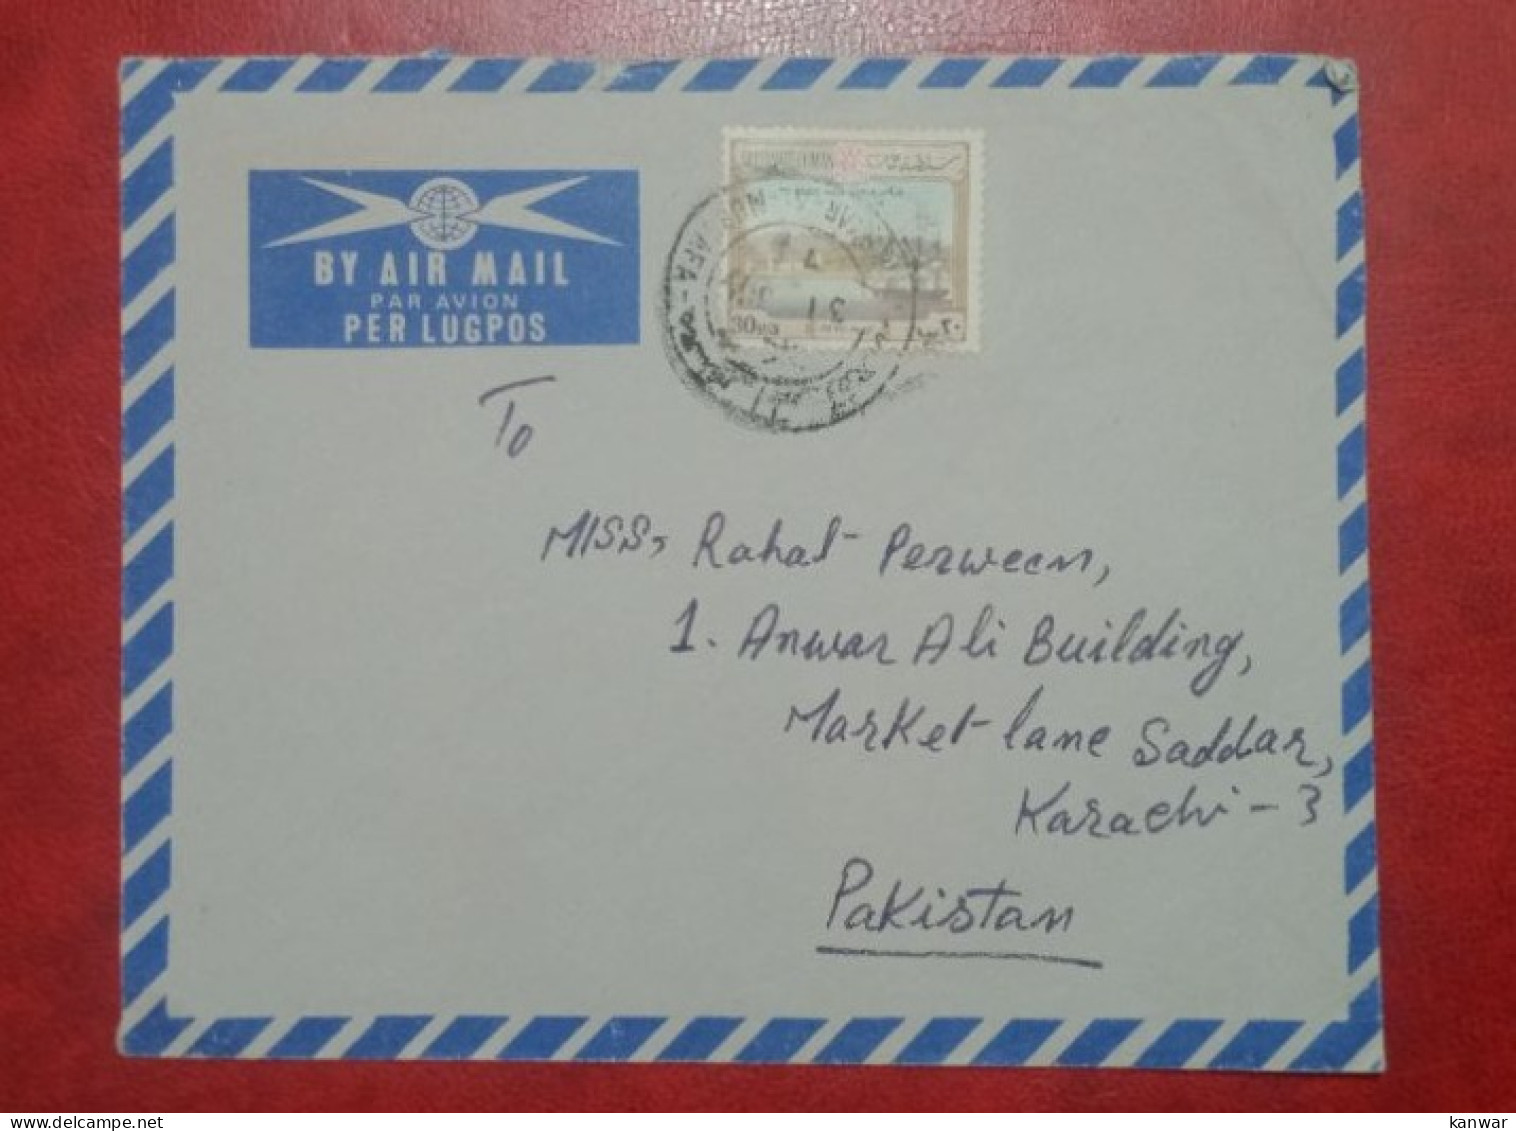 BY AIR MAIL
PAR AVION
PER LUGPOS
30
٣٠
31
To
MISS, Rahat Perween,
1. Anwar Ali Building,
Market lane Saddar,
Karachi - 3
Pakistan
kanwar